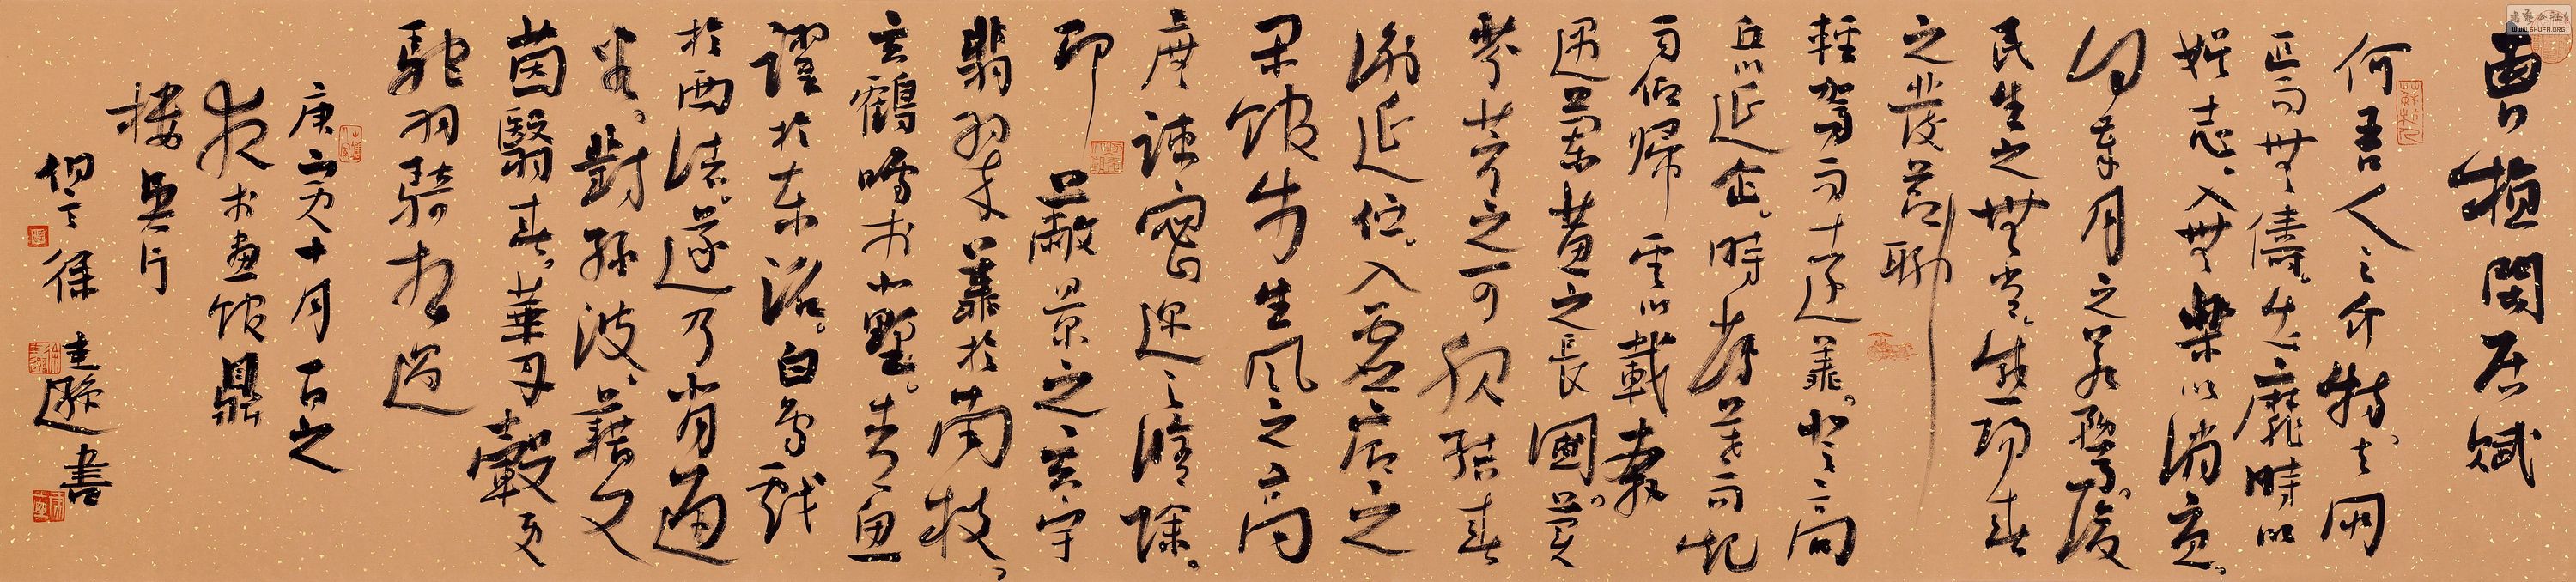 曹植閑居賦
何吾人之介特去朋
匹而無儔。出靡時以
娱志,入無樂以消憂。
何歲月之若騖。復
民生之無常。感陽春
之發節聊
輕駕而遠翔。登高
丘以延企。時薄暮而起
雨仰歸雲以載奔
遇蘭蕙之長圃。冀
芬芳之可服結春
蘅延佇。入虛廓之
閑館步生風之高
密邇之修除。
即蔽景之玄宇
翡翠翔於南枝,
玄鶴鳴於北野。青魚
躍於東沼。白鳥戲
於西渚。遂乃背通
谷。對綠波,藉文
茵翳春。華丹轂更
馳羽騎相過
庚寅十月百之
書畫館鼎
樓
徐書
WWW.SHUFA.ORG